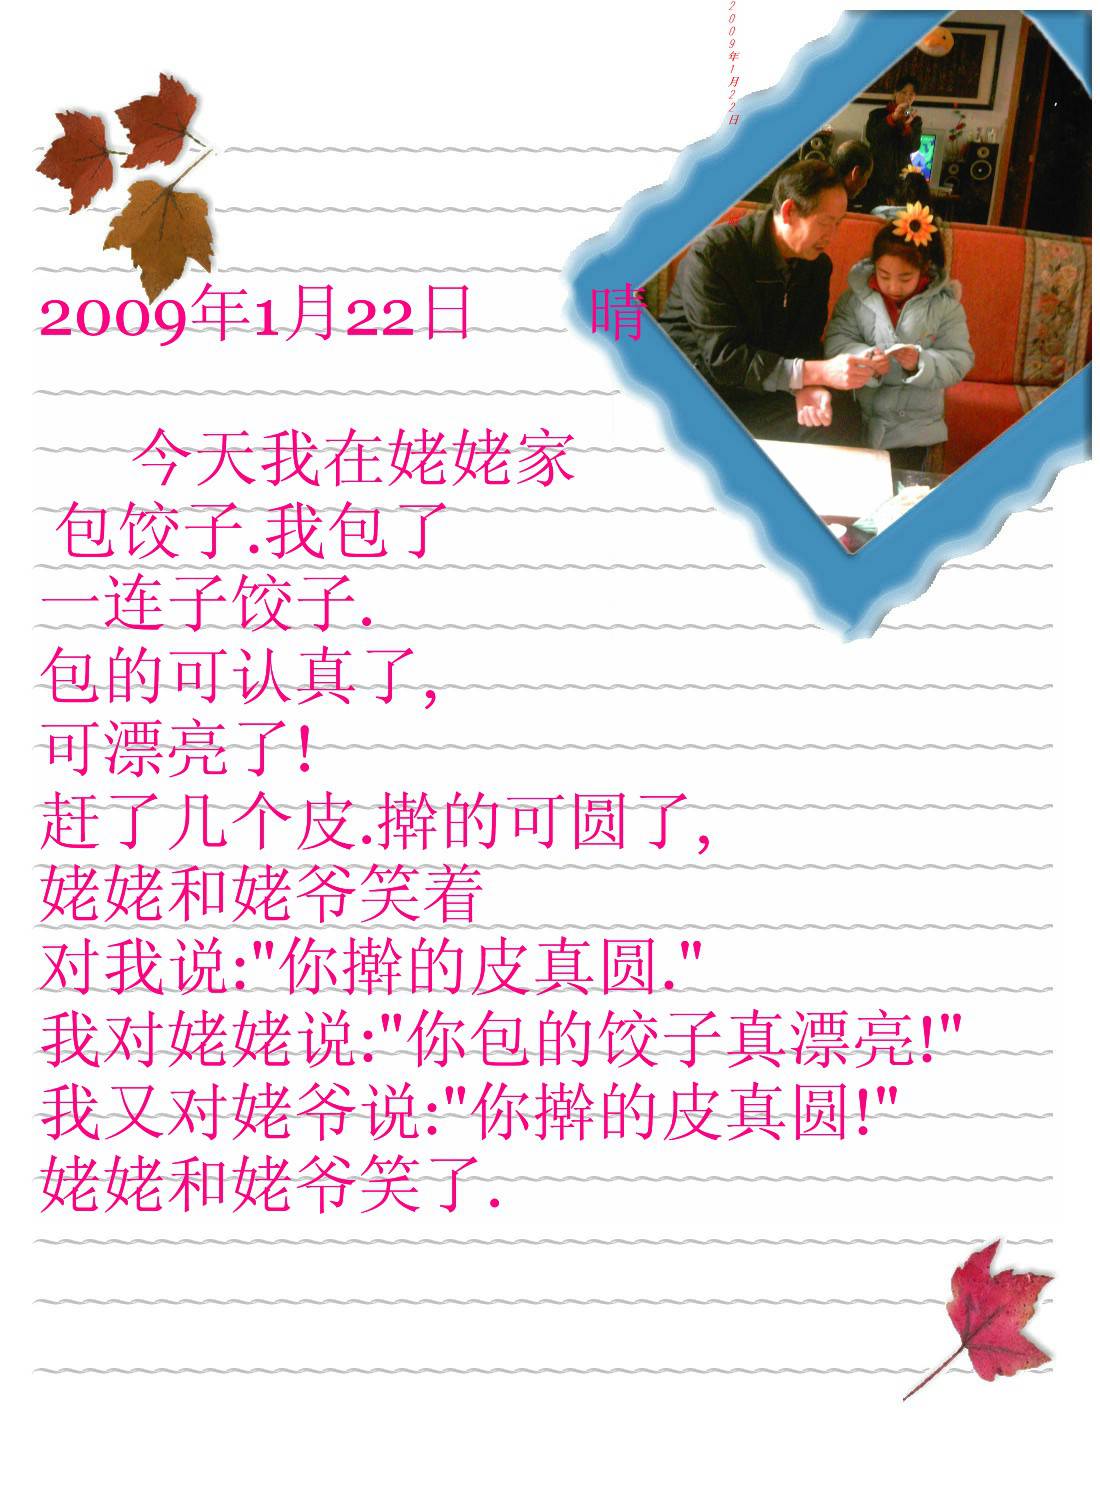 2009年1月22日
2009年1月22日 晴
今天我在姥姥家
包饺子.我包了
一连子饺子.
包的可认真了,
可漂亮了!
赶了几个皮.擀的可圆了,
姥姥和姥爷笑着
对我说:"你擀的皮真圆."
我对姥姥说:"你包的饺子真漂亮!"
我又对姥爷说:"你擀的皮真圆!"
姥姥和姥爷笑了.